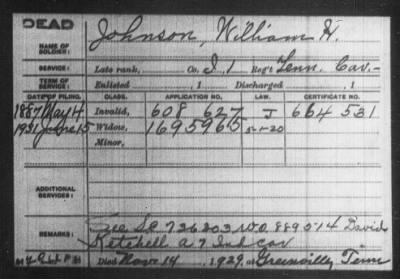 DEAD
NAME OF SOLDIER: Johnson, William H.
SERVICE: Late rank, Co. I, 1 Reg't Tenn. Cav.
TERM OF SERVICE: Enlisted , 1 Discharged , 1
DATE OF FILING. CLASS. APPLICATION NO. LAW. CERTIFICATE NO.
1887 May 4. Invalid, 608 627 J 664 531
1931 June 15 Widow, 1695965 5-1-20
Minor,
ADDITIONAL SERVICES:
REMARKS: See SC 726203 WO 889514 David
Ketchell A 7 Ind Cav
Died Nov 14, 1929 at Greenville, Tenn